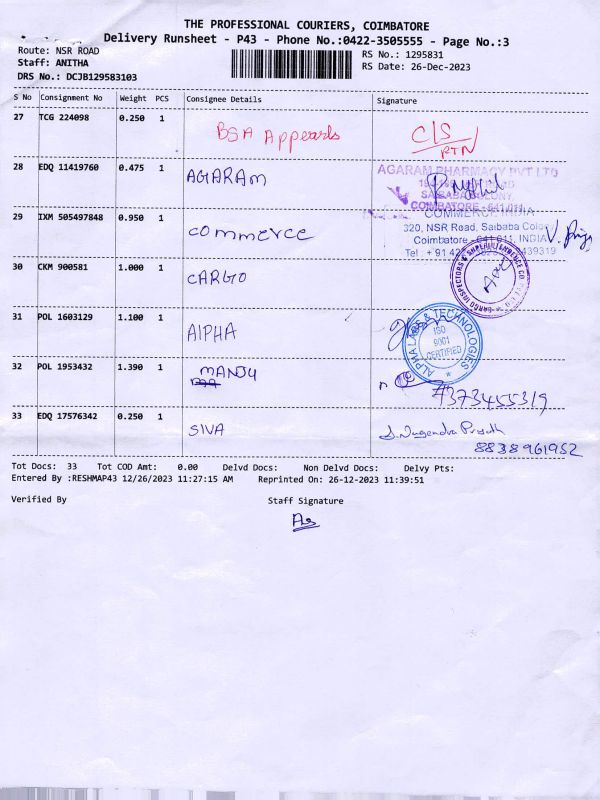 THE PROFESSIONAL COURIERS, COIMBATORE
Delivery Runsheet - P43 - Phone No.:0422-3505555 - Page No.:3
Route: NSR ROAD
RS No.: 1295831
Staff: ANITHA
RS Date: 26-Dec-2023
DRS No.: DCJB129583103
S No Consignment No Weight PCS Consignee Details Signature
27 TCG 224098 0.250 1 BSA C/S
RTN
28 EDQ 11419760 0.475 1 AGARAM AGARAM PHARMACY PVT LTD
COIMBATORE - 641 011
29 IXM 505497848 0.950 1 commerce COMMERCE INDIA
320, NSR Road, Saibaba Colony
Coimbatore - 641 011, INDIA
30 CKM 900581 1.000 1 CARGO
31 POL 1603129 1.100 1 AlPHA
ALPHA LABS & TECHNOLOGIES
ISO
9001
CERTIFIED
32 POL 1953432 1.390 1 MANJU
33 EDQ 17576342 0.250 1 SIVA
8838961952
Tot Docs: 33 Tot COD Amt: 0.00 Delvd Docs: Non Delvd Docs: Delvy Pts:
Entered By :RESHMAP43 12/26/2023 11:27:15 AM Reprinted On: 26-12-2023 11:39:51
Verified By Staff Signature